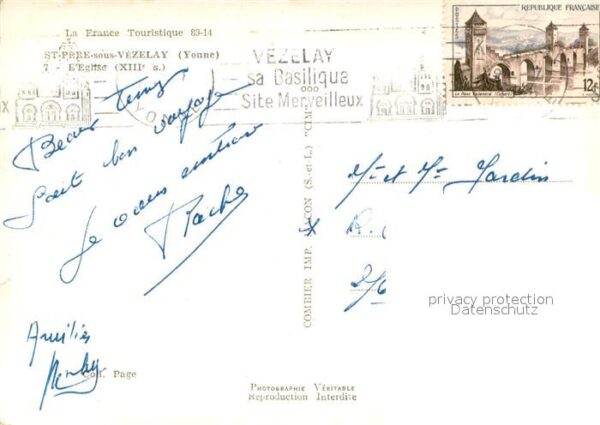 La France Touristique 89-14
ST-PÈRE-sous-VÉZELAY (Yonne)
7 - L'Eglise (XIIIe s.)
VÉZELAY
sa Basilique
Site Merveilleux
REPUBLIQUE FRANÇAISE
12F
Le Pont Valentré (Cahors)
Beau temps
Fait bon voyage
Je vous
Amitiés
Coll. Page
COMBIER IMP. MACON (S.-et-L.) "CIM"
Mr et Me Jardin
privacy protection
Datenschutz
PHOTOGRAPHIE VÉRITABLE
Reproduction Interdite